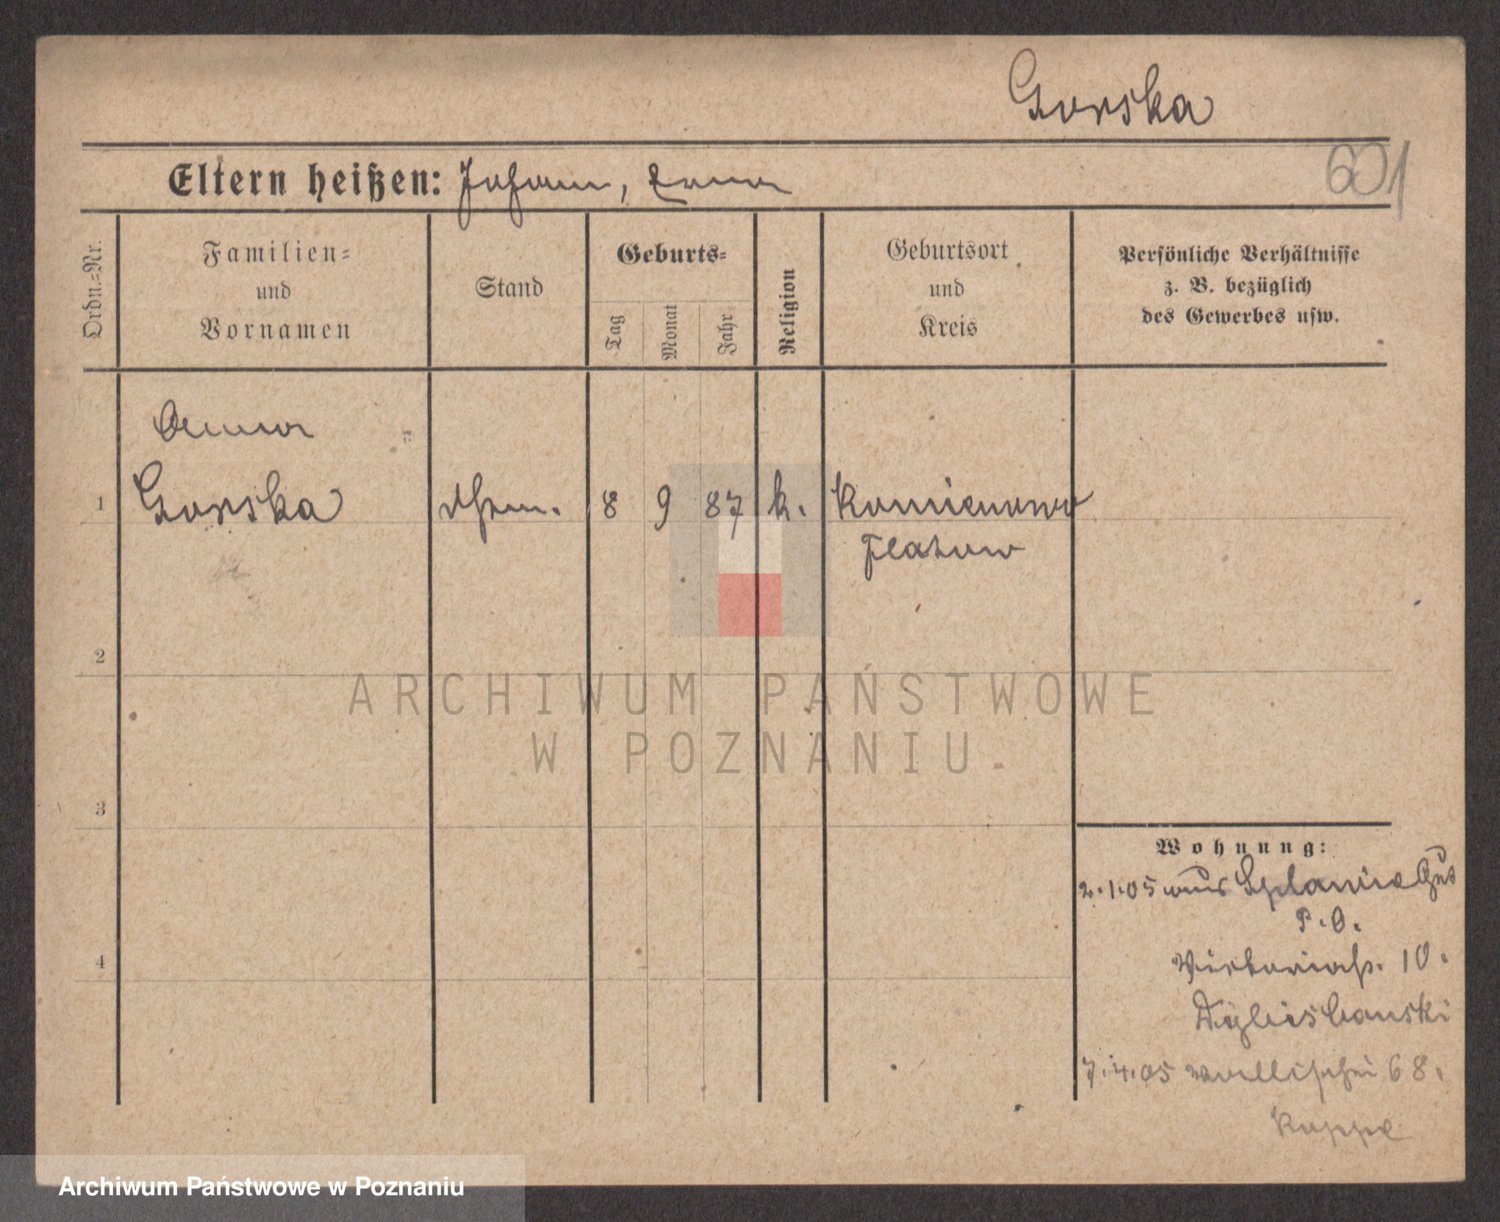 Gorska
601
Eltern heißen: Johann, Anna
Ordn.=Nr.
Familien=
und
Vornamen
Stand
Geburts=
Tag
Monat
Jahr
Religion
Geburtsort
und
Kreis
Persönliche Verhältnisse
z. B. bezüglich
des Gewerbes usw.
Anna
1 Gorska 8 9 87 k. Kamienowo
Flatow
2
3
4
Wohnung:
2.1.05 aus Gut
P.O.
Viktoriastr. 10.
7.4.05 Wallischei 68.
Koppe
ARCHIWUM PAŃSTWOWE
W POZNANIU
Archiwum Państwowe w Poznaniu